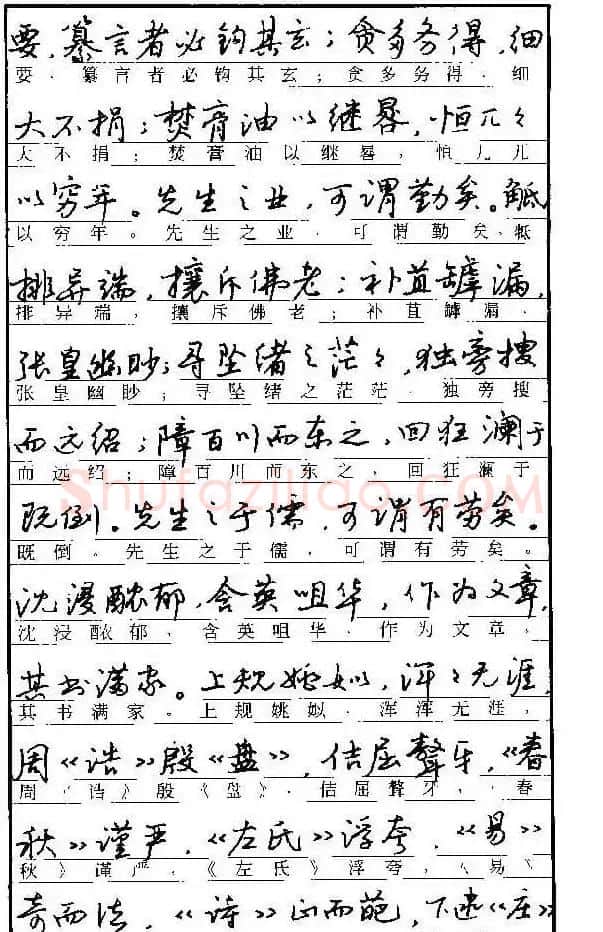 要，纂言者必钩其玄；贪多务得，细
要，纂言者必钩其玄；贪多务得，细
大不捐；焚膏油以继晷，恒兀々
大不捐；焚膏油以继晷，恒兀兀
以穷年。先生之业，可谓勤矣。觝
以穷年。先生之业，可谓勤矣。牴
排异端，攘斥佛老；补苴罅漏，
排异端，攘斥佛老；补苴罅漏，
张皇幽眇；寻坠绪之茫々，独旁搜
张皇幽眇；寻坠绪之茫茫，独旁搜
而远绍；障百川而东之，回狂澜于
而远绍；障百川而东之，回狂澜于
既倒。先生之于儒，可谓有劳矣。
既倒。先生之于儒，可谓有劳矣。
沈浸醲郁，含英咀华，作为文章，
沈浸醲郁，含英咀华，作为文章，
其书满家。上规姚姒，浑々无涯，
其书满家。上规姚姒，浑浑无涯，
周《诰》殷《盘》，佶屈聱牙，《春
周《诰》殷《盘》，佶屈聱牙，《春
秋》谨严，《左氏》浮夸，《易》
秋》谨严，《左氏》浮夸，《易》
奇而法，《诗》正而葩，下逮《庄》
Shufaziliao.COM